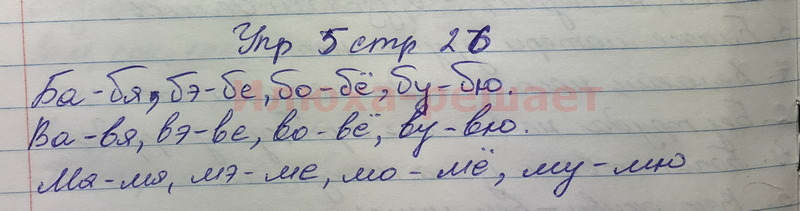 Упр 5 стр 26
Ба-бя, бэ-бе, бо-бё, бу-бю.
Илюха-решает
Ва-вя, вэ-ве, во-вё, ву-вю.
Ма-мя, мэ-ме, мо-мё, му-мю